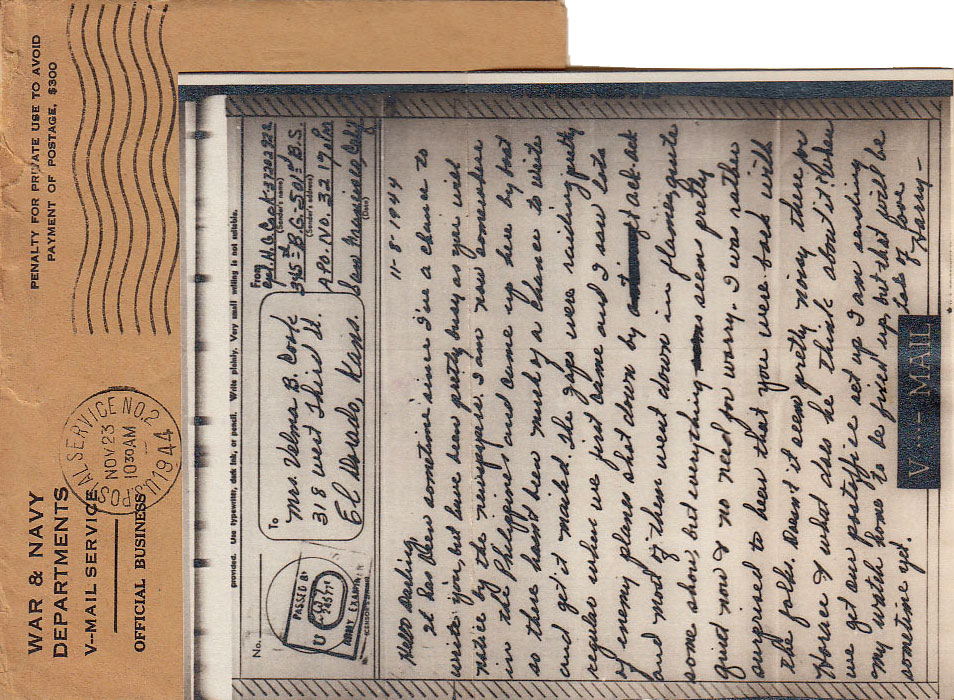 WAR & NAVY
DEPARTMENTS
V--MAIL SERVICE
OFFICIAL BUSINESS
U.S. POSTAL SERVICE NO. 2
NOV 23
10 30 AM
1944
PENALTY FOR PRIVATE USE TO AVOID
PAYMENT OF POSTAGE, $300
provided. Use typewriter, dark ink, or pencil. Write plainly. Very small writing is not suitable.
No.
PASSED BY
U S
ARMY EXAMINER
(CENSOR'S STAMP)
To
Mrs. Velma B. Cook
318 West Third St.
El Dorado, Kans.
From
H. G. Cook-37202922
(Sender's name)
345th B.G. 501st B.S.
(Sender's address)
A.P.O. No. 321 % Pm
San Francisco Calif
(Date)
11-8-1944
Hello Darling,
It has been sometime since I've a chance to
write you, but have been pretty busy as you will
notice by the newspapers. I am now somewhere
in the Philippines, and came up here by boat
so there hasn't been much of a chance to write
and get it mailed. The Japs were raiding pretty
regular when we just came and I saw lots
of enemy planes shot down by ack-ack
and most of them went down in flames, quite
some show, but everything seems pretty
quiet now & no need to worry. I was rather
surprised to hear that you were back with
the folks. Doesn't it seem pretty noisy there for
Horace & what does he think about it? When
we get our postoffice set up I am sending
my watch home to be fixed up, but that will be
sometime yet. Lots of love
Harry-
V...- MAIL